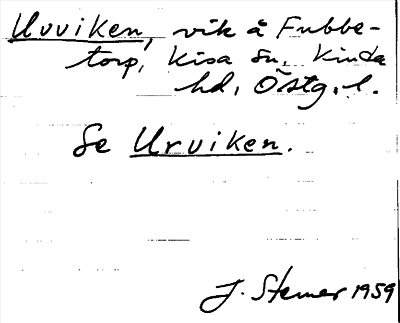 Uvviken, vik å Fubbe-
torp, Kisa sn, Kinda
hd, Östg. l.
Se Urviken.
J. Sterner 1959